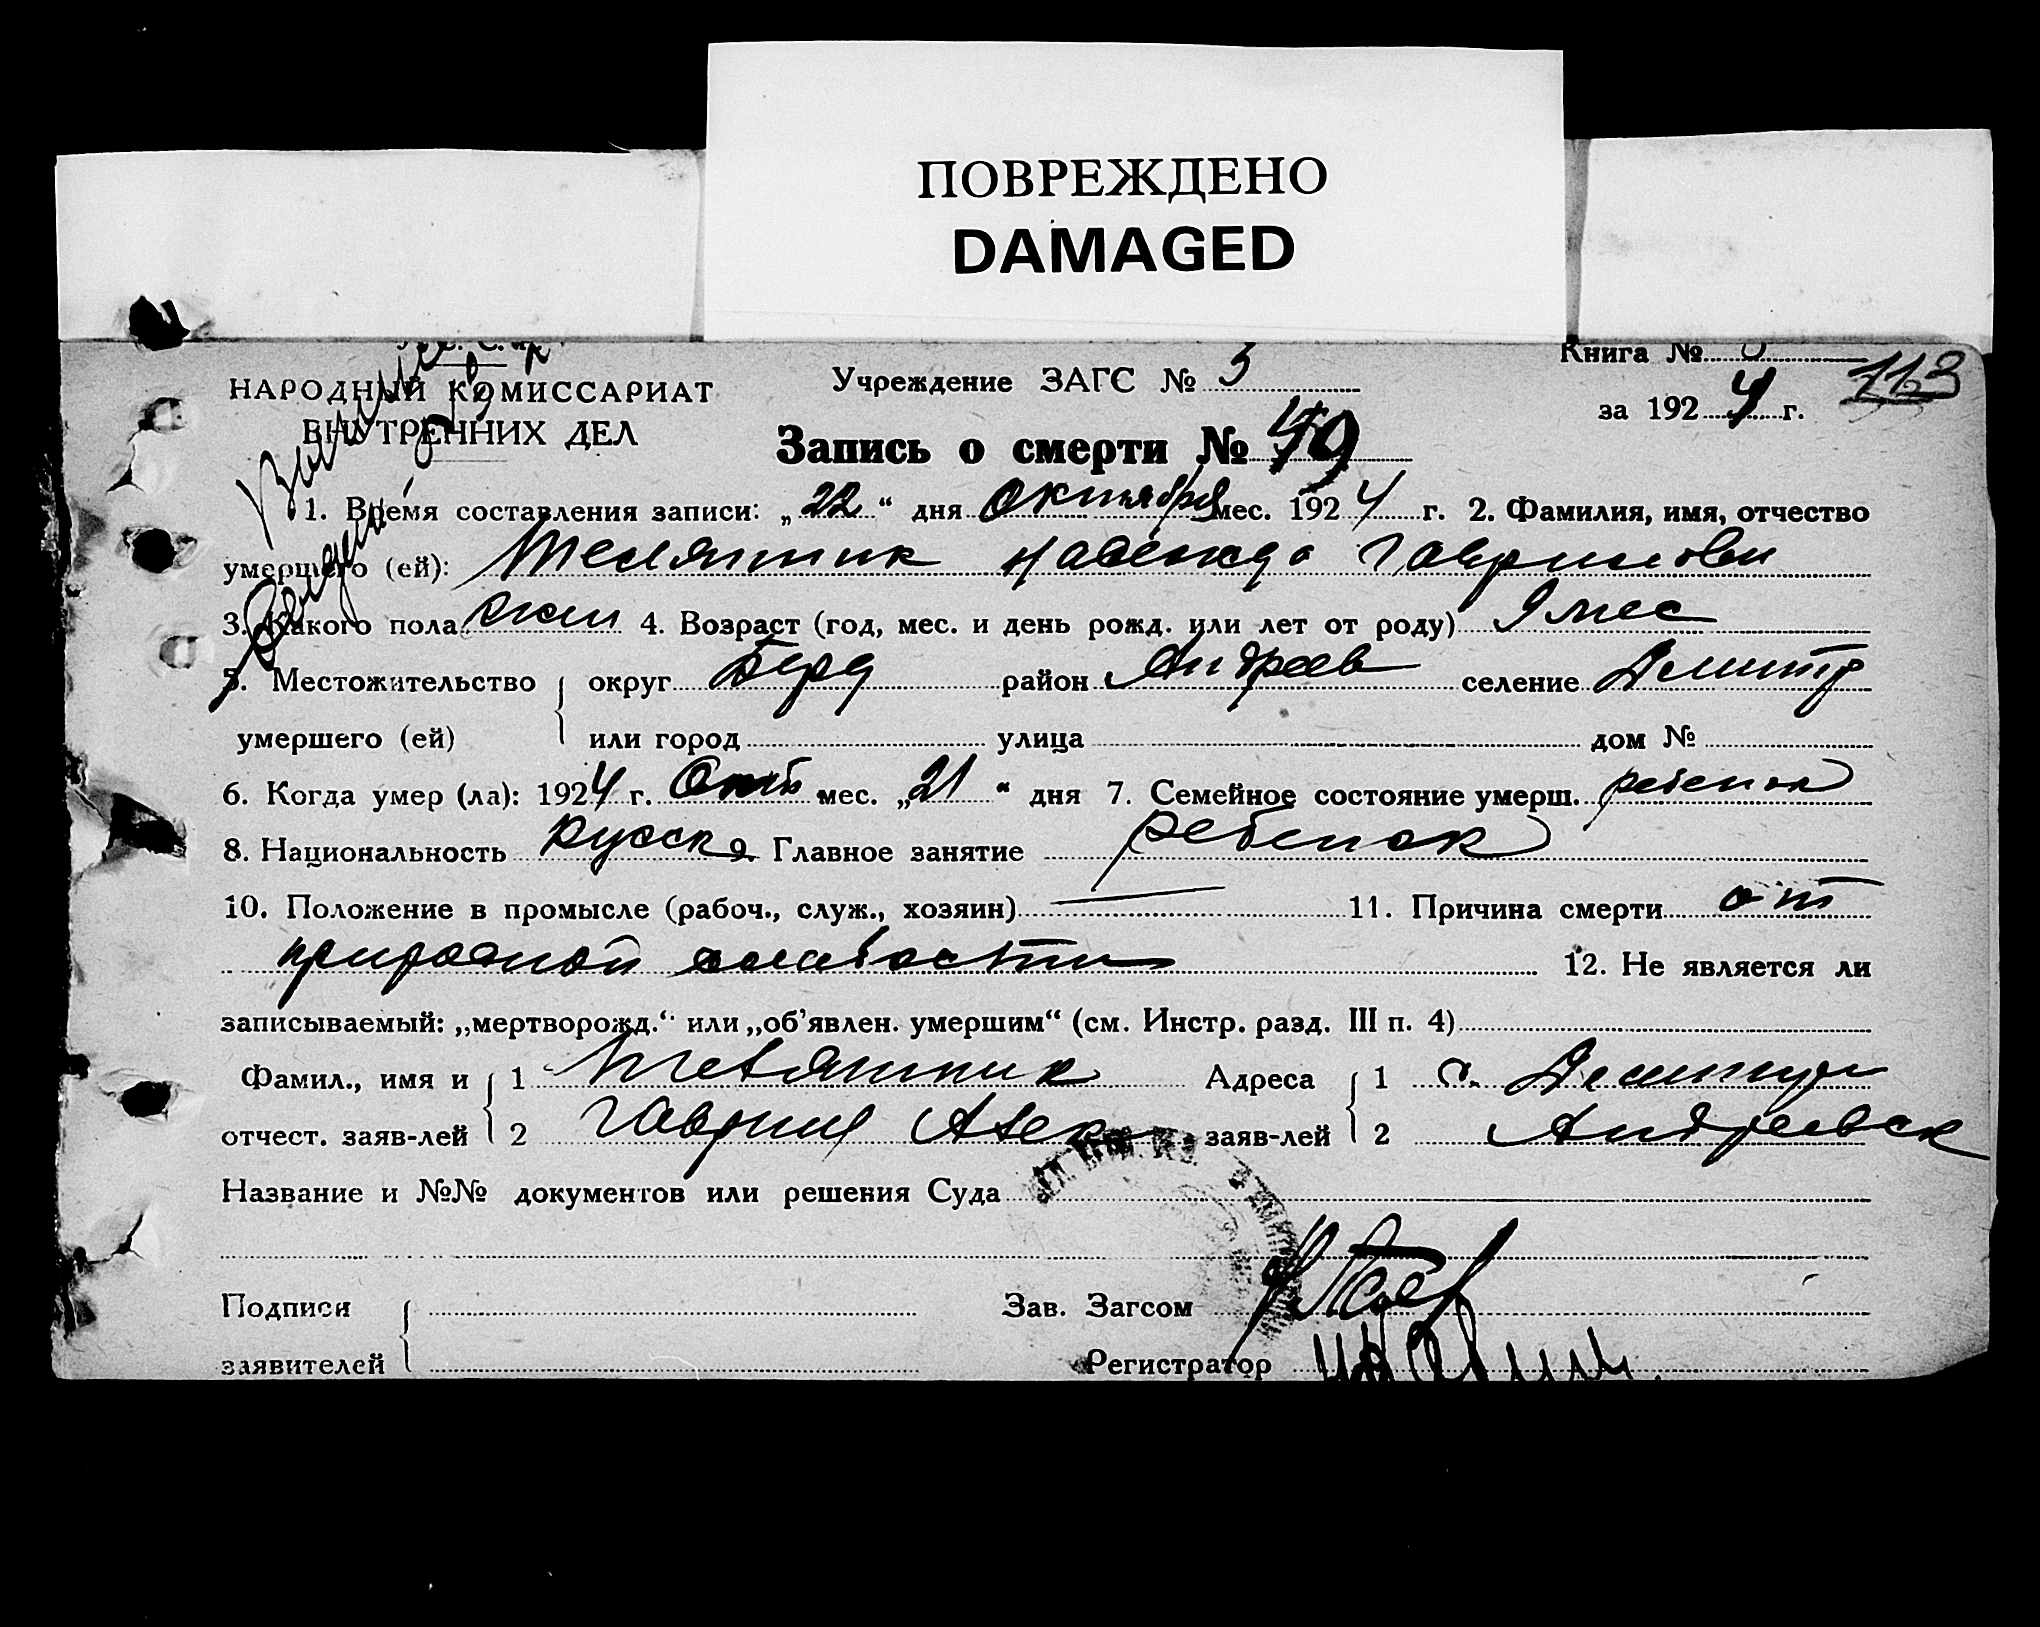 ПОВРЕЖДЕНО
DAMAGED
Книга №
113
НАРОДНЫЙ КОМИССАРИАТ
ВНУТРЕННИХ ДЕЛ
Учреждение ЗАГС № 3
за 1924 г.
Запись о смерти № 49
1. Время составления записи: „22“ дня Октября мес. 1924 г. 2. Фамилия, имя, отчество
умершего (ей): Телятник Надежда Гавриловн
3. Какого пола жен 4. Возраст (год, мес. и день рожд. или лет от роду) 9 мес
5. Местожительство округ Берд район Андреев селение Дмитр
умершего (ей) или город улица дом №
6. Когда умер (ла): 1924 г. Октб мес. „21“ дня 7. Семейное состояние умерш. ребенок
8. Национальность русск 9. Главное занятие ребенок
10. Положение в промысле (рабоч., служ., хозяин) — 11. Причина смерти от
природной слабости 12. Не является ли
записываемый: „мертворожд.“ или „об'явлен. умершим“ (см. Инстр. разд. III п. 4)
Фамил., имя и 1 Телятник Адреса 1 с. Дмитр
отчест. заяв-лей 2 Гаврил Алек заяв-лей 2 Андреевск
Название и №№ документов или решения Суда
Подписи Зав. Загсом
заявителей Регистратор